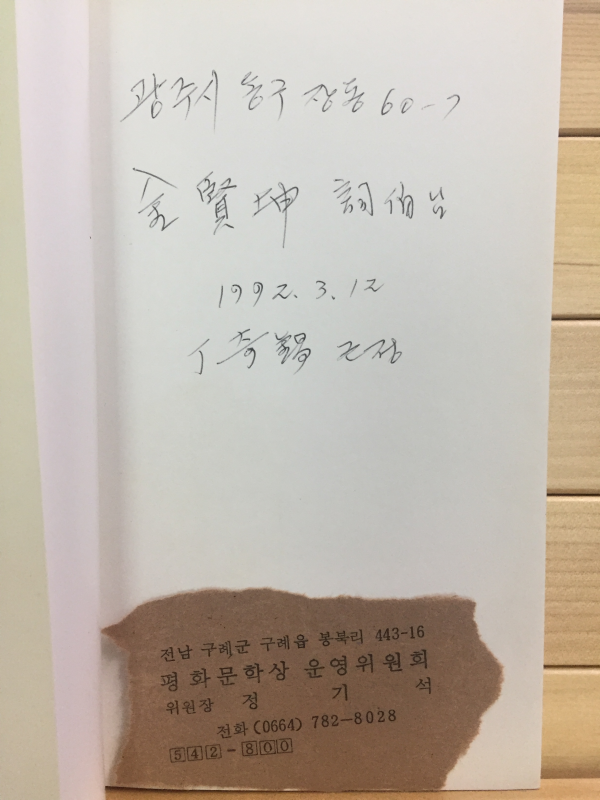 광주시 동구 장동 60-7
金賢坤 詞伯님
1992. 3. 12
丁奇 드림
전남 구례군 구례읍 봉북리 443-16
평화문학상 운영위원회
위원장 정 기 석
전화 (0664) 782-8028
542-800